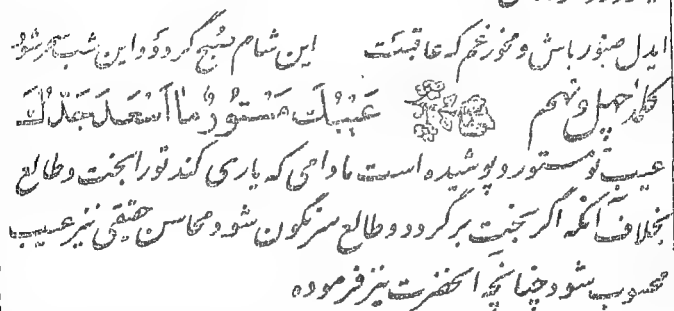 ایدل صبور باش و مخور غم که عاقبت این شام صبح گردد و این شب سحر شود
کلمه چهل و نهم عَيْبُكَ مَسْتُورٌ مَا أَسْعَدَكَ جَدُّكَ
عیب تو مستور و پوشیده است مادامی که یاری کند تو را بخت و طالع
بخلاف آنکه اگر بخت برگردد و طالع سرنگون شود محاسن حقیقی نیز عیب
محسوب شود چنانچه آنحضرت نیز فرموده